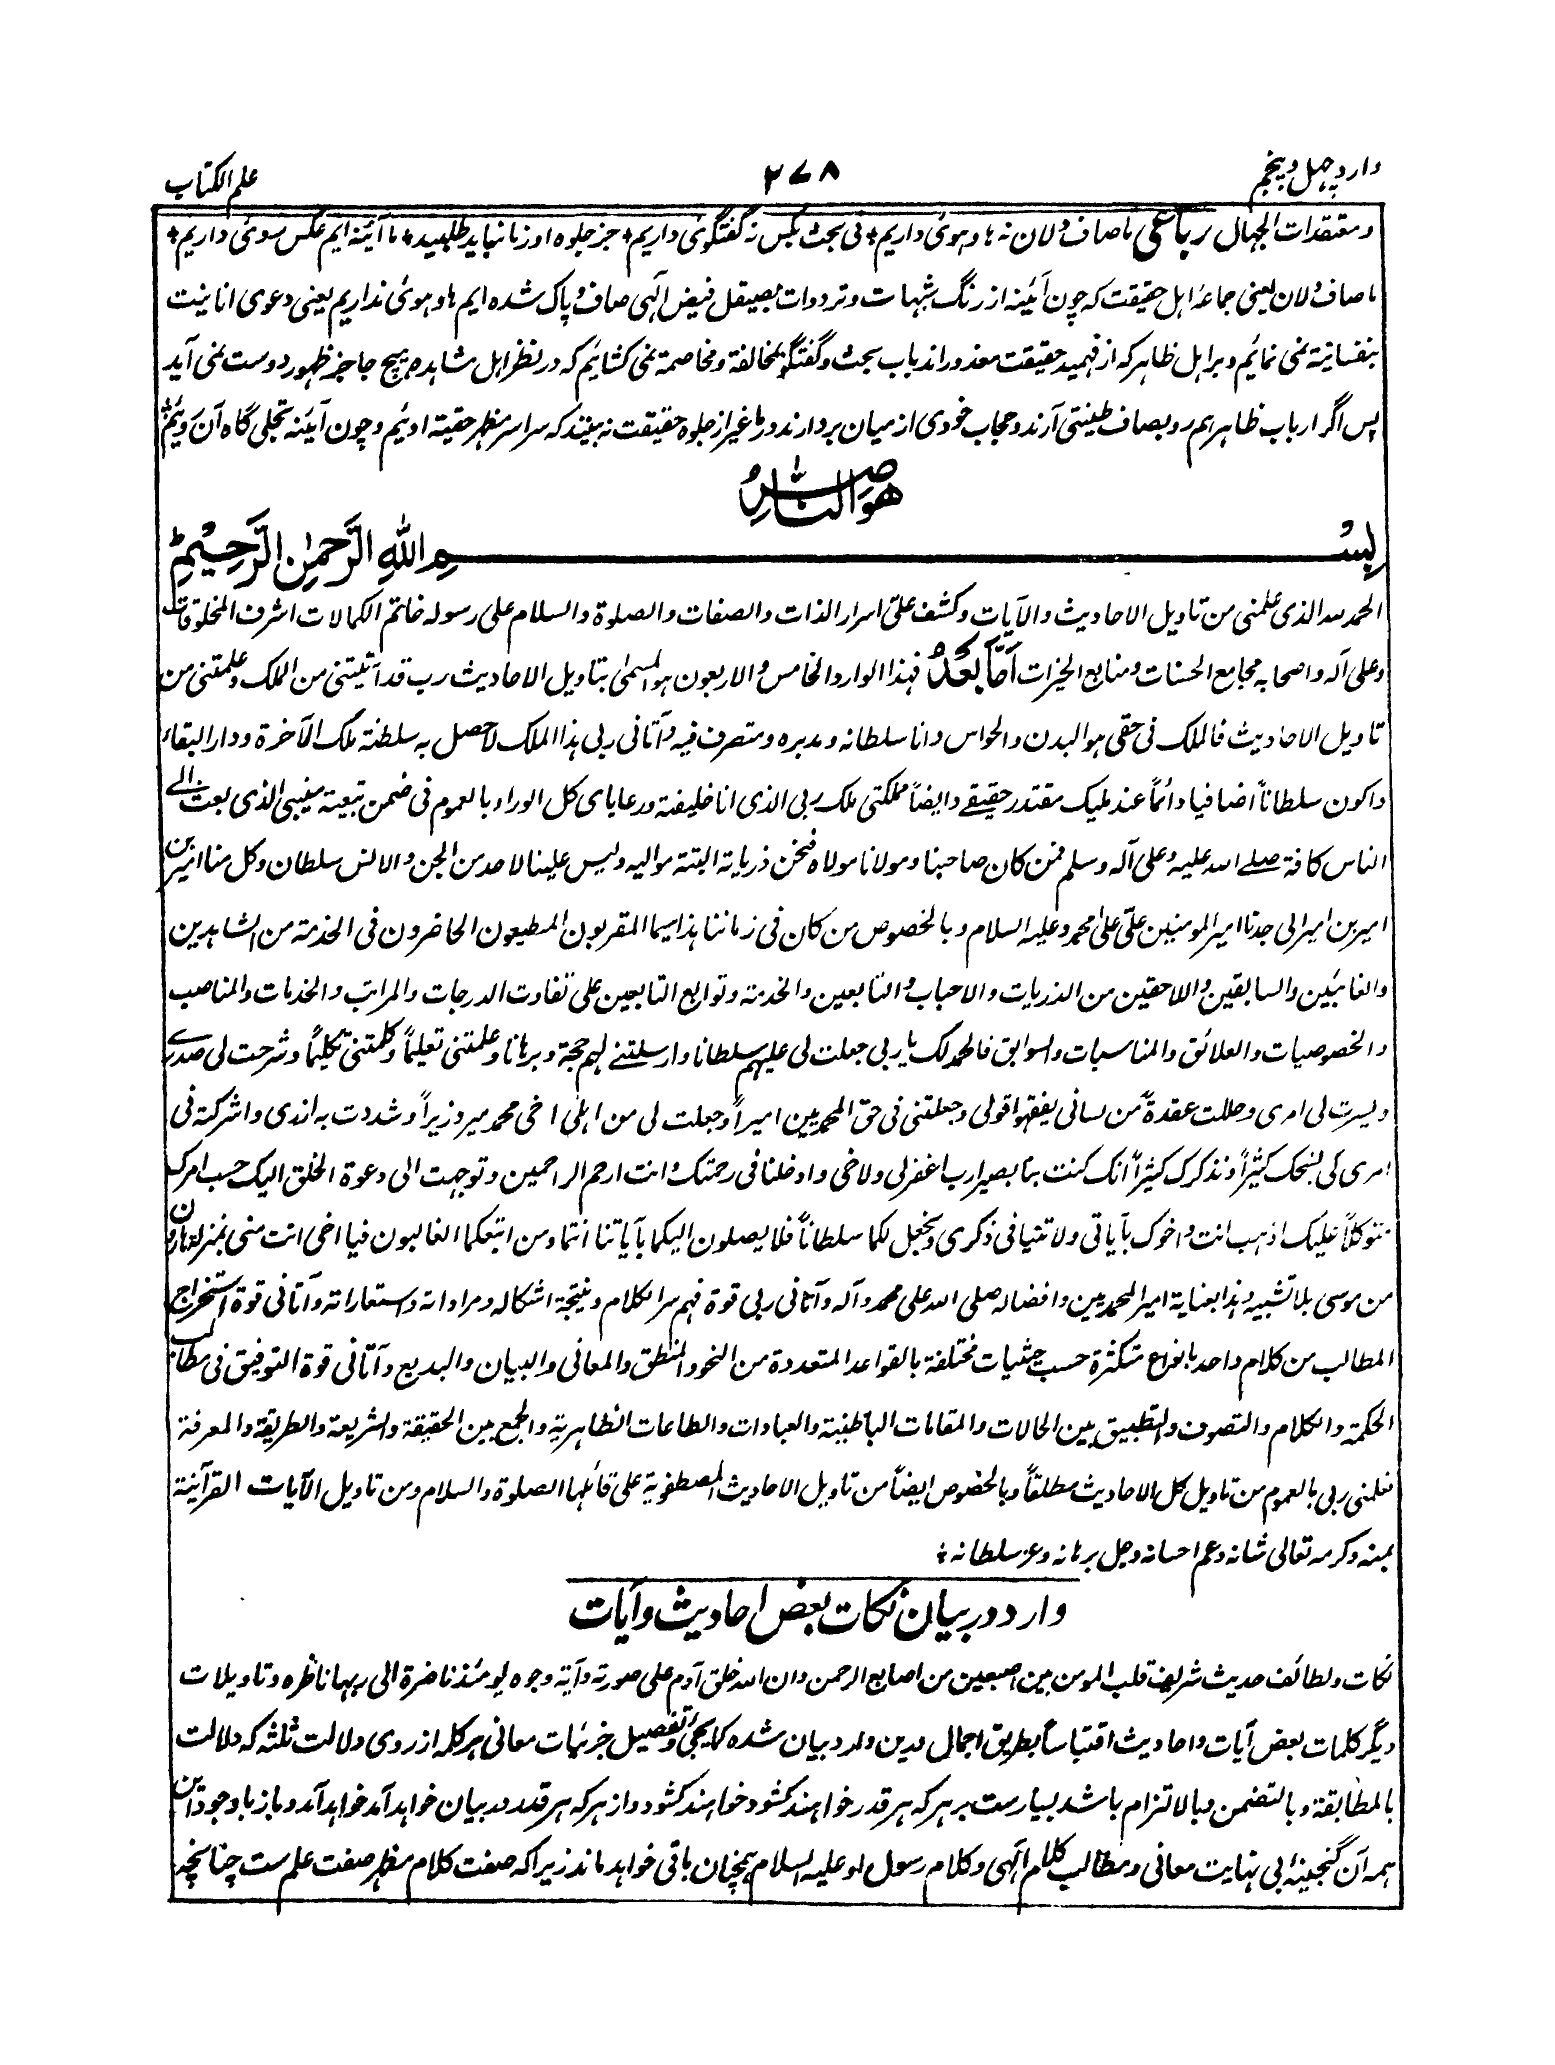 وارد چهل و پنجم
۲۷۸
علم الکتاب
و معتقدات الجهال رباعی ما صاف دلان نه ها و هوئی داریم + نی بحث بکس نه گفتگوئی داریم + جز جلوه او ز ما نباید طلبید + ما آئینه ایم عکس سوئی داریم +
ما صاف دلان یعنی جماعهٔ اهل حقیقت که چون آئینه از زنگ شبهات و ترددات بصیقل فیض الهی صاف و پاک شده ایم ها و هوئی نداریم یعنی دعوی انانیت
بنفسانیة نمی نمائیم و بر اهل ظاهر که از فهمید حقیقت معذور اند باب بحث و گفتگو بمخالفة و مخاصمة نمی کشائیم که در نظر اهل مشاهده هیچ جا جز ظهور دوست نمی آید
پس اگر ارباب ظاهر هم رو بصاف طینتی آرند و حجاب خودی از میان بردارند در ما غیر از جلوه حقیقت نه بینند که سراسر مظهر حقیقة اوئیم و چون آئینه تجلی گاه آن روئیم
هو الناصر
بسم الله الرحمن الرحیم
الحمد لله الذی علمنی من تاویل الاحادیث والآیات و کشف علی اسرار الذات والصفات والصلوة والسلام علی رسوله خاتم الکمالات اشرف المخلوقات
و علی آله و اصحابه مجامع الحسنات و منابع الخیرات اما بعد فهذا الوارد الخامس والاربعون هو المسمیٰ بتاویل الاحادیث رب قد آتیتنی من الملک و علمتنی من
تاویل الاحادیث فالملک فی حقی هو البدن والحواس و انا سلطانه و مدبره و متصرف فیه و آتانی ربی هذا الملک لاحصل به سلطنة ملک الآخرة و دار البقاء
و اکون سلطاناً اضافیا دائماً عند ملیک مقتدر حقیقے و ایضاً مملکتی ملک ربی الذی انا خلیفة و رعایای کل الوراء بالعموم فی ضمن تبعیة نبیی الذی بعث الے
الناس کافة صلے الله علیه و علی آله و سلم فمن کان صاحبنا و مولانا مولاه فنحن ذریاته البتة موالیه و لیس علینا لاحد من الجن والانس سلطان و کل منا امیر بن
امیر بن امیر الی جدنا امیر المومنین علی علیٰ محمد و علیه السلام و بالخصوص من کان فی زماننا هذا سیما المقربون المطیعون الحاضرون فی الخدمة من الشاهدین
والغائبین والسابقین واللاحقین من الذریات والاحباب والتابعین والخدمة و توابع التابعین علی تفاوت الدرجات والمراتب والخدمات والمناصب
والخصوصیات والعلائق والمناسبات والسوابق فالحمد لک یا ربی جعلت لی علیهم سلطانا و ارسلتنے لهم حجة و برهانا و علمتنی تعلیماً و کلمتنی تکلیماً و شرحت لی صدرے
و یسرت لی امری و حللت عقدةً من لسانی یفقهوا قولی و جعلتنی فی حق المحمدیین امیراً و جعلت لی من اهلی اخی محمد میر وزیراً و شددت به ازری و اشرکته فی
امری کی نسبحک کثیراً و نذکرک کثیراً انک کنت بنا بصیرا رب اغفر لی ولاخی و ادخلنا فی رحمتک و انت ارحم الراحمین و توجهت الی دعوة الخلق الیک حسب امرک
متوکلاً علیک اذهب انت و اخوک بآیاتی ولا تنیا فی ذکری و نجعل لکما سلطاناً فلا یصلون الیکما بآیاتنا انتما و من اتبعکما الغالبون فیا اخی انت منی بمنزلة هارون
من موسی بلا تشبیه و هذا بعنایة امیر المحمدیین و افضاله صلی الله علی محمد و آله و آتانی ربی قوة فهم سر الکلام و نتیجة اشکاله و مراداته و استعاراته و آتانی قوة استخراج
المطالب من کلام واحد بانواع متکثرة حسب حیثیات مختلفة بالقواعد المتعددة من النحو والمنطق والمعانی والبیان والبدیع و آتانی قوة التوفیق فی مطالب
الحکمة والکلام والتصوف والتطبیق بین الحالات والمقامات الباطنیة والعبادات والطاعات الظاهریة والجمع بین الحقیقة والشریعة والطریقة والمعرفة
فعلمنی ربی بالعموم من تاویل کل الاحادیث مطلقاً و بالخصوص ایضاً من تاویل الاحادیث المصطفویة علی قائلها الصلوة والسلام و من تاویل الآیات القرآنیة
بمنه و کرمه تعالی شانه و عم احسانه و جل برهانه و عز سلطانه +
وارد در بیان نکات بعض احادیث و آیات
نکات و لطائف حدیث شریف قلب المومن بین اصبعین من اصابع الرحمن و ان الله خلق آدم علی صورته و آیة وجوه یومئذ ناضرة الی ربها ناظره و تاویلات
دیگر کلمات بعض آیات و احادیث اقتباساً بطریق اجمال درین وارد بیان شده کما یجئ و تفصیل جزئیات معانی هر کلمه از روی دلالت ثلثه که دلالت
بالمطابقة و بالتضمن و بالالتزام باشد بسیارست بر هر که هر قدر خواهند کشود خواهند کشود و از هر که هر قدر در بیان خواهد آمد خواهد آمد و باز با وجود این
همه آن گنجینهٔ بی نهایت معانی و مطالب کلام الهی و کلام رسول او علیه السلام همچنان باقی خواهد ماند زیرا که صفت کلام مظهر صفت علم ست چنانچه